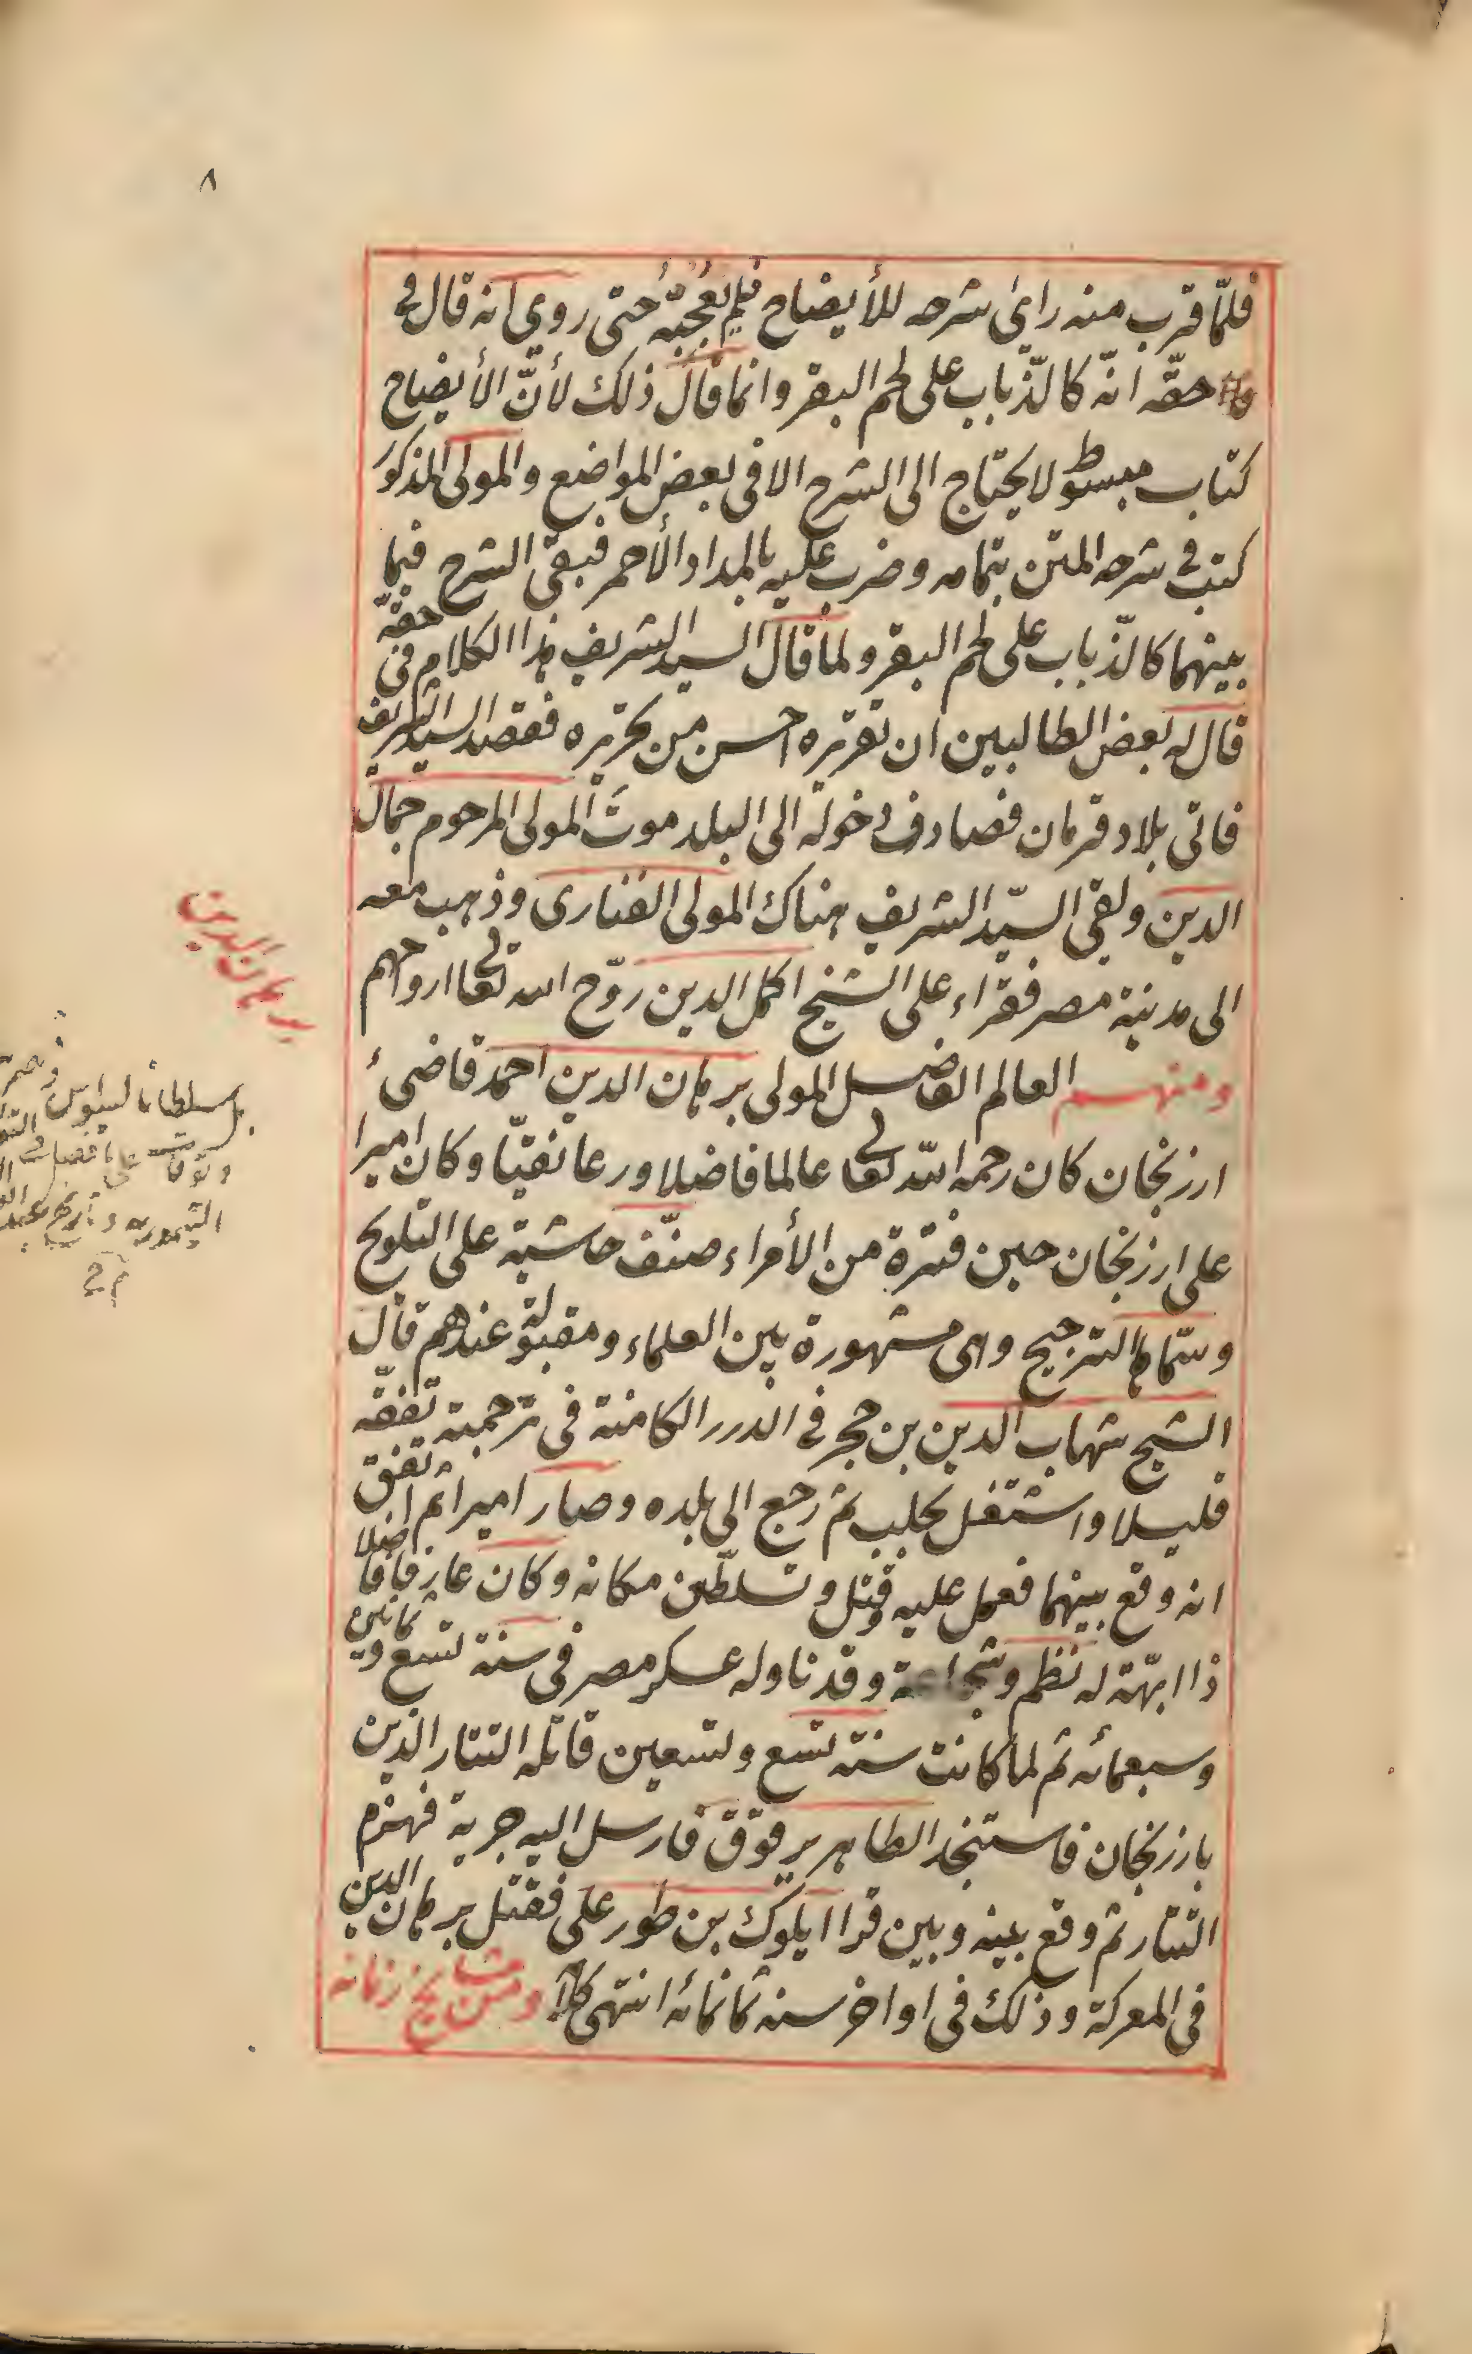 ٨
فلمّا قرب منه راى شرحه للأيضاح فلم يعجبه حتى روي انه قال في
حقّه انّه كالذّباب على لحم البقر وانما قال ذلك لأنّ الأيضاح
كتاب مبسوط لا يحتاج الى الشرح الا فى بعض المواضع والمولى المذكور
كتب في شرحه المتن بتمامه وضرب عليه بالمداد الأحمر فبقى الشرح فيما
بينهما كالذّباب على لحم البقر ولما قال السيد الشريف هذا الكلام فى حقّه
قال له بعض الطالبين ان تقريره احسن من تحريره فقصد السيد الشريف
فاتى بلاد قرمان فصادف دخوله الى البلد موت المولى المرحوم جمال
الدين ولقى السيّد الشريف هناك المولى الفنارى وذهب معه
الى مدينة مصر فقراء على الشيخ اكمل الدين روّح الله تعالى ارواحهم
ومنهم العالم الفاضل المولى برهان الدين احمد قاضىٔ
ارزنجان كان رحمه الله تعالى عالما فاضلا ورعا تقيّا وكان اميرا
على ارزنجان حين فترة من الأمراء صنّف حاشية على التلويح
وسمّاها الترجيح وهى مشهورة بين العلماء ومقبولة عندهم قال
الشيخ شهاب الدين بن حجر في الدرر الكامنة فى ترجمته تفقّه
قليلا واشتغل بحلب ثم رجع الى بلده وصار اميرا ثم اتفق
انه وقع بينهما فعمل عليه وقتل وتسلطن مكانه وكان عارفا فاضلا
ذا ابهّة له نظم وشجاعة وقد ناوله عسكر مصر فى سنة تسع وثمانين
وسبعمائه ثم لما كانت سنة تسع وتسعين قاتله التتار الذين
بارزنجان فاستنجد الظاهر برقوق فارسل اليه جريدة فهزم
التتار ثم وقع بينه وبين قرا ايلوك بن طور على فقتل برهان الدين
فى المعركة وذلك فى اواخر سنه ثمانمائه انتهى كلامه ومن مشايخ زمانه
برهان الدين